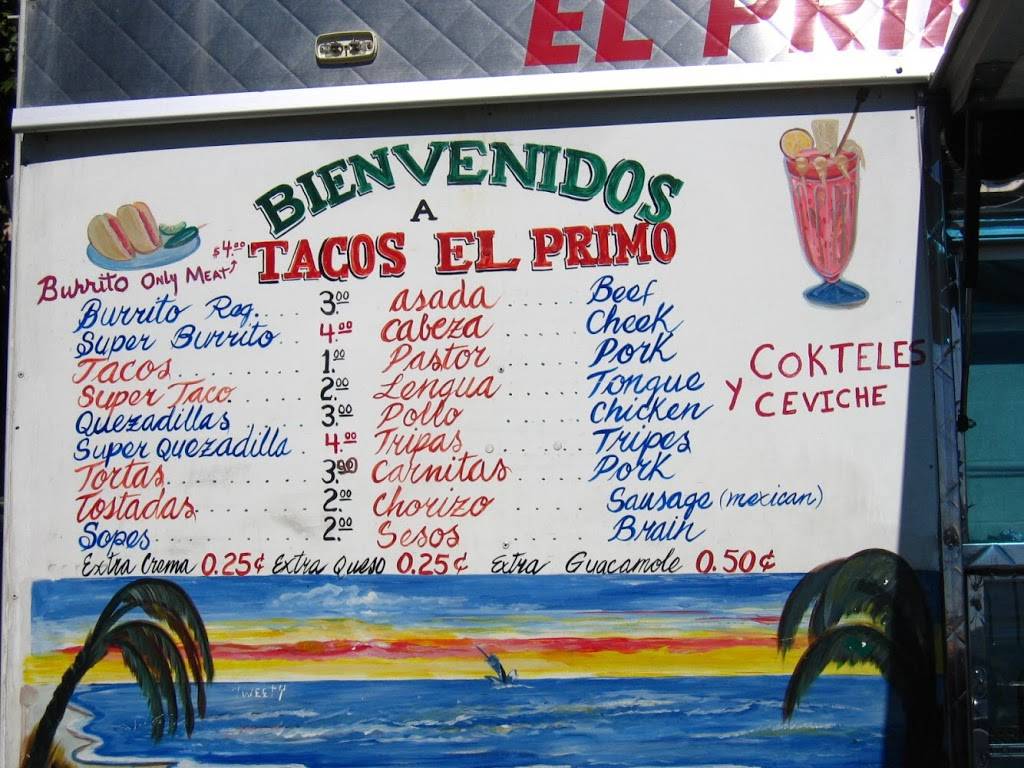 EL PRI
BIENVENIDOS
A
TACOS EL PRIMO
Burrito Only Meat $4.00
Burrito Reg..... 3.00 asada ..... Beef
Super Burrito.. 4.00 Cabeza ..... Cheek
Tacos.......... 1.00 Pastor ..... Pork
Super Taco....... 2.00 Lengua ..... Tongue
Quezadillas...... 3.00 Pollo ..... Chicken
Super Quezadilla. 4.00 Tripas ..... Tripes
Tortas.......... 3.00 Carnitas ..... Pork
Tostadas........ 2.00 Chorizo ..... Sausage (mexican)
Sopes........... 2.00 Sesos ..... Brain
Extra Crema 0.25¢ Extra Queso 0.25¢ Extra Guacamole 0.50¢
COKTELES
Y CEVICHE
TWEETY